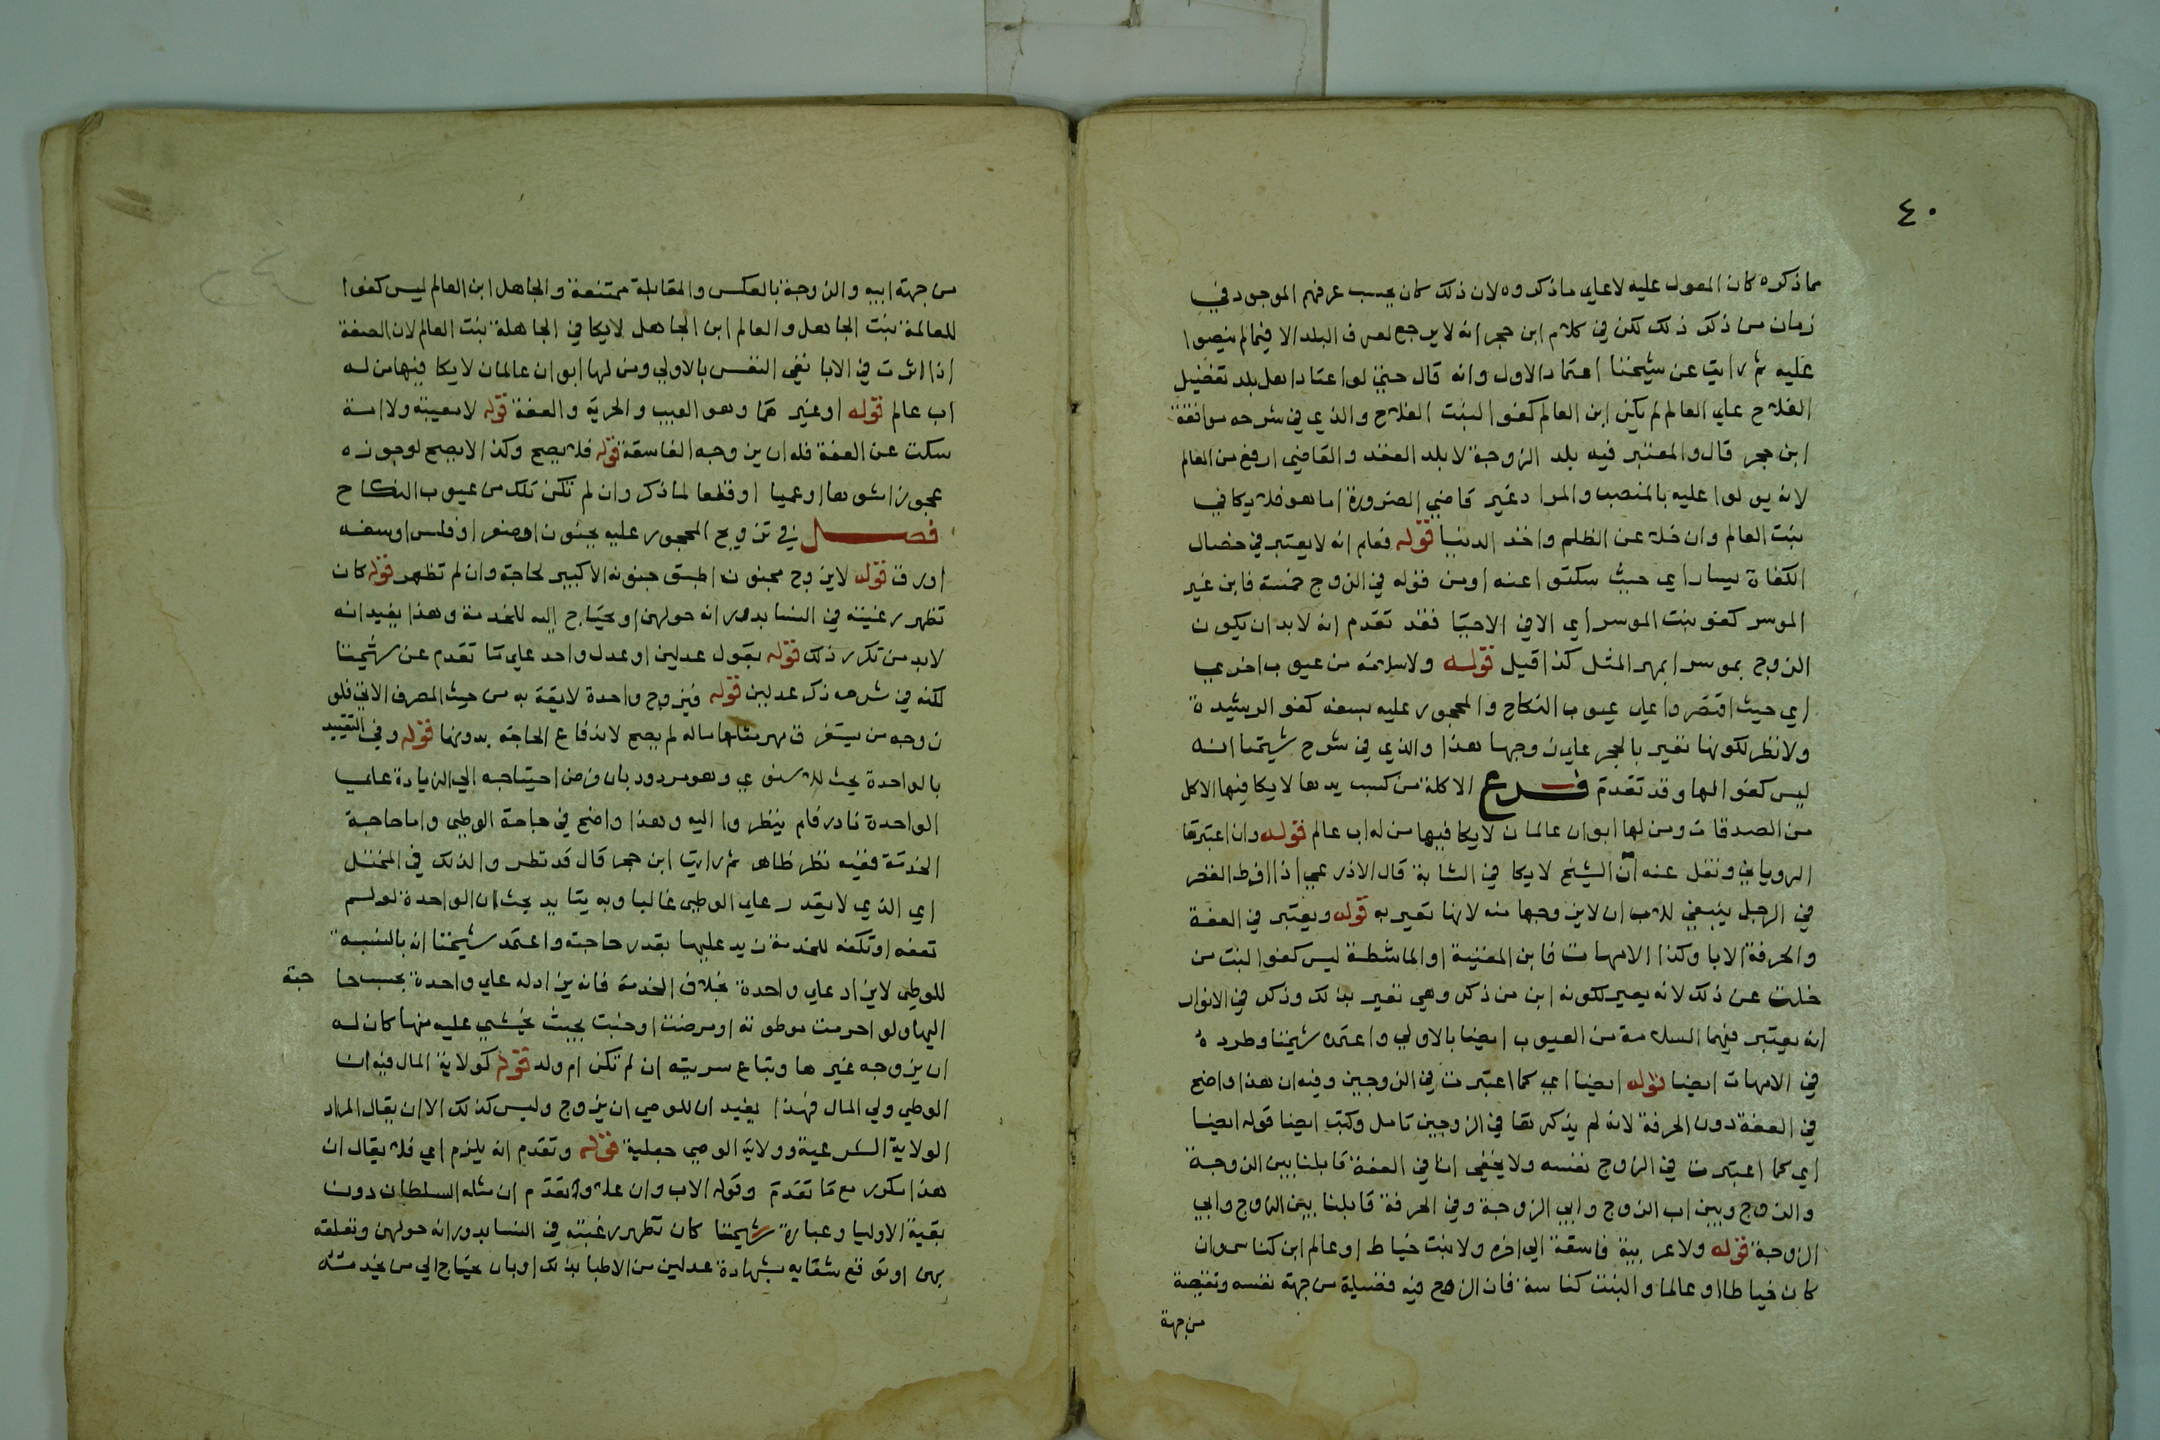 ٤٠
مما ذكروه كان المعول عليه لا علي ما ذكروه لان ذلك كان بحسب عرفهم الموجود في
زمان من ذكر ذلك لكن في كلام ابن حجر انه لا يرجع لعرف البلد الا فيما لم ينصوا
عليه ثم رايت عن شيخنا اعتماد الاول وانه قال حتي لو اعتاد اهل بلد تفضيل
الفلاح علي العالم لم يكن ابن العالم كفوا لبنت الفلاح والذي في شرحه موافقة
ابن حجر قال والمعتبر فيه بلد الزوجة لا بلد العقد والقاضي ارفع من العالم
لانه يولوا عليه بالمنصب والمراد غير قاضي الضرورة اما هو فلا يكافي
بنت العالم وان خلا عن الظلم واخذ الدنيا قوله فعلم انه لا يعتبر في خصال
الكفاة يسار اي حيث سكتوا عنه او من قوله في الزوج خمسة فابن غير
الموسر كفو بنت الموسر اي الا في الاجبار فقد تقدم انه لا بد ان يكون
الزوج موسرا بمهر المثل كذا قيل قوله ولا سلامة من عيوب اخري
اي حيث اقتصروا علي عيوب النكاح والمحجور عليه بسفه كفو الرشيدة
ولا نظر لكونها تعير بالحجر علي زوجها هذا والذي في شرح شيخنا انه
ليس كفوا لها وقد تقدم فرع الاكلة من كسب يدها لا يكافيها الاكل
من الصدقات ومن لها ابوان عالمان لا يكافيها من له اب عالم قوله وان اعتبرها
الروياني ونقل عنه ان الشيخ لا يكافي الشابة قال الاذرعي اذا افرط الفقر
في الرجل ينبغي للاب ان لا يزوجها منه لانها تعير به قوله ويعتبر في العفة
والحرفة الابا وكذا الامهات فابن المغنية او الماشطة ليس كفوا لبنت من
خلت عن ذلك لانه يعير لكونه ابن من ذكر وهي تعير بذلك وذكر في الانوار
انه يعتبر فيهما السلامة من العيوب ايضا بالاولي واعتمده شيخنا وطرده
في الامهات ايضا قوله ايضا اي كما اعتبرت في الزوجين وفيه ان هذا واضح
في العفة دون الحرفة لانه لم يذكرها في الزوجين تامل وكتب ايضا قوله ايضا
اي كما اعتبرت في الزوج نفسه ولا يخفي ان في العفة قابلنا بين الزوجة
والزوج وبين اب الزوج وابي الزوجة وفي الحرفة قابلنا بين الزوج وابي
الزوجة قوله ولا عربية فاسقة الي اخره ولا بنت خياط او عالم ابن كناس وان
كان خياطا او عالما والبنت كناسة فان الزوج فيه فضيلة من جهة نفسه ونقيصة
من جهة
من جهة ابيه والزوجة بالعكس والمقابلة ممتنعة والجاهل ابن العالم ليس كفوا
للعالمة بنت الجاهل والعالم ابن الجاهل لا يكافي الجاهلة بنت العالم لان الصفة
اذا اثرت في الابا نفي النفس بالاولي ومن لها ابوان عالمان لا يكافيها من له
اب عالم قوله او غيرهما وهو العيب والحرية والعفة قوله لا معيبة ولا امة
سكت عن العفة فله ان يزوجه الفاسقة قوله فلا يصح وكذا لا يصح لو جوزه
عجوزا شوها او عميا او قطعا لما ذكر وان لم تكن تلك من عيوب النكاح
فصل في تزويج المحجور عليه بجنون او صغر او فلس او سفه
او رق قوله لا يزوج مجنون اطبق جنونه الا كبير لحاجة وان لم تظهر قوله كان
تظهر رغبته في النسا بدورانه حولهن او يحتاج اليه للخدمة وهذا يفيد انه
لا بد من تكرر ذلك قوله بقول عدلين او عدل واحد علي ما تقدم عن شيخنا
لكنه في شرحه ذكر عدلين قوله فيزوج واحدة لايقة به من حيث المصرف الاتي فلو
زوجه من يستغرق مهر مثلها ماله لم يصح لاندفاع الحاجة بدونها قوله وفي التقييد
بالواحدة بحث للاسنوي وهو مردود بان فرض احتياجه الي الزيادة علي
الواحدة نادر فلم ينظروا اليه وهذا واضح في حاجة الوطي واما حاجة
الخدمة ففيه نظر ظاهر ثم رايت ابن حجر قال قد نظروا لذلك في المختبل
اي الذي لا يقدر علي الوطي غالبا وبه يتايد بحث ان الواحدة لو لم
تعفه او تكفه للخدمة زيد عليها بقدر حاجته واعتمد شيخنا انه بالنسبة
للوطي لا يزاد علي واحدة بخلاف الخدمة فانه يزاد له علي واحدة بحسب حا جته
اليها ولو احرمت موطوته او مرضت او جنت بحيث يخشي عليه منها كان له
ان يزوجه غيرها وتباع سريته ان لم تكن ام ولد قوله كولاية المال فيه ان
الوطي ولي المال فهذا يفيد ان للوصي ان يزوج وليس كذلك الا ان يقال المراد
الولاية الشرعية وولاية الوصي جعلية قوله وتقدم انه يلزم اي فلا يقال ان
هذا مكرر مع ما تقدم وقوله الاب وان علا وتقدم ان مثله السلطان دون
بقية الاوليا وعبارة شيخنا كان تظهر رغبته في النسا بدورانه حولهن وتعلقه
بهن او توقع شفايه بشهادة عدلين من الاطبا بذلك او بان يحتاج الي من يخدمه